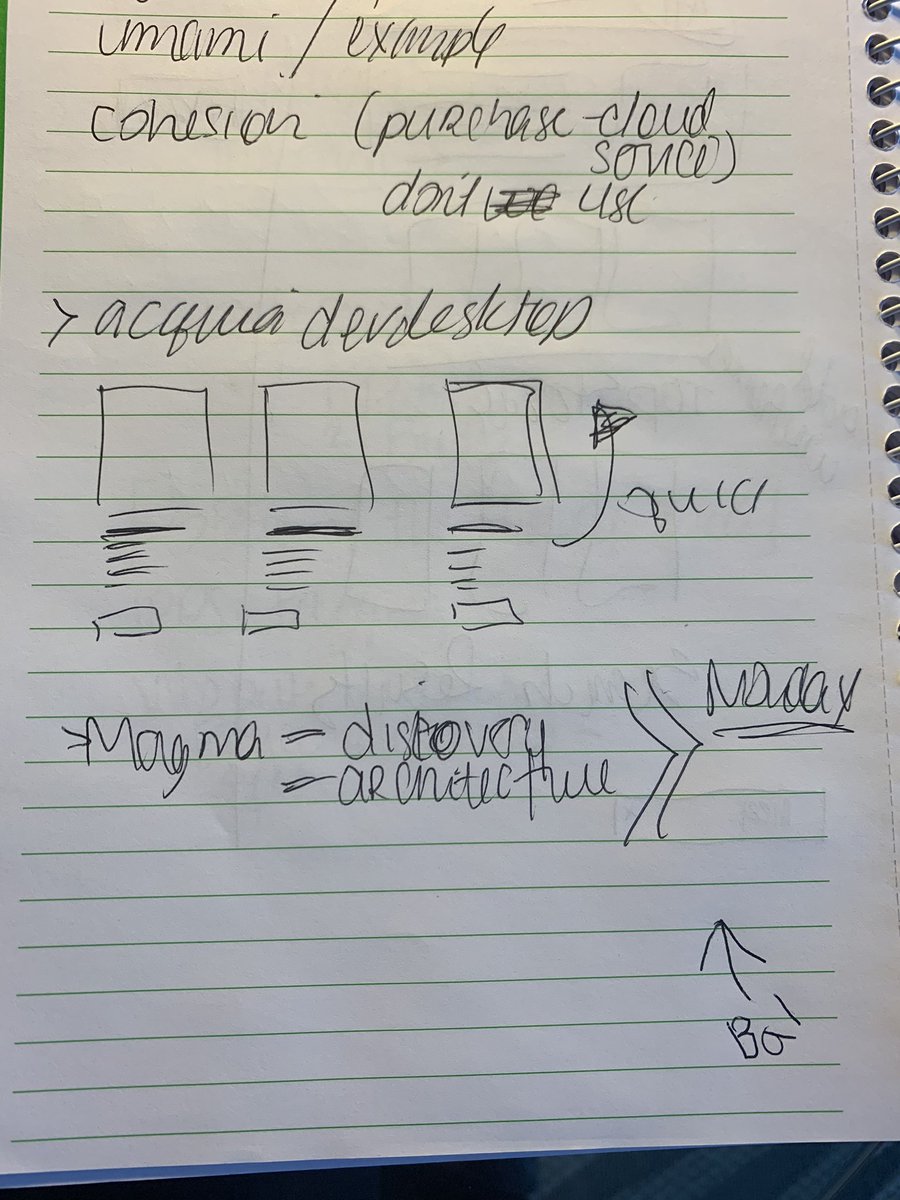 umami / example
cohesion (purchase - cloud
source)
don't use
> acquia devdesktop
quick
> Magma = discovery
= architecture